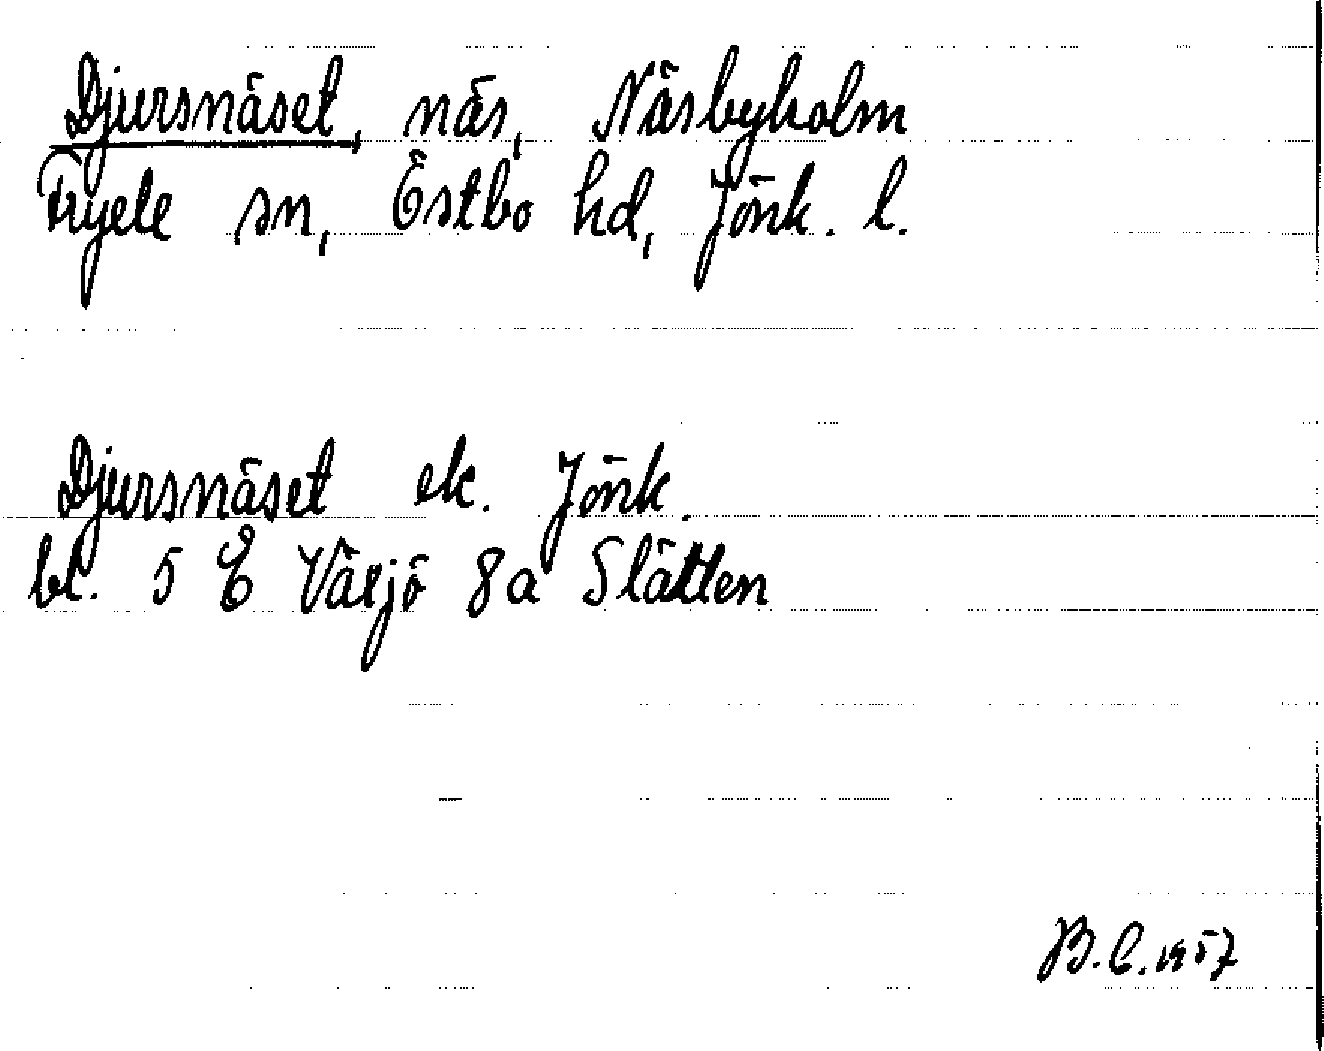 Djursnäset, näs, Näsbyholm
Fryele sn, Östbo hd, Jönk. l.
Djursnäset ek. Jönk.
bl. 5 E Växjö 8a Slätten
B.C. 1957